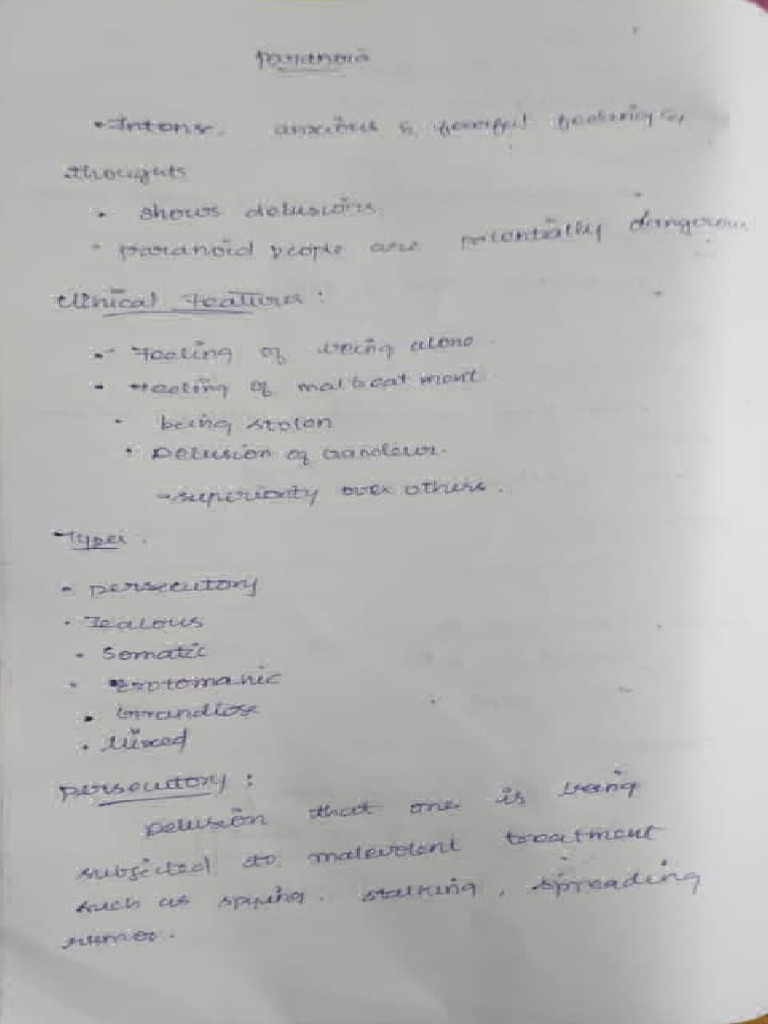 Paranoia
• Intense, anxious & fearful feelings &
thoughts
• shows delusions
• paranoid people are potentially dangerous
Clinical Features :
• Feeling of being alone.
• Feeling of maltreatment
• being stolen
• Delusion of Grandeur.
→ superiority over others.
Types.
• persecutory
• Jealous
• Somatic
• Erotomanic
• Grandiose
• Mixed
persecutory :
Delusion that one is being
subjected to malevolent treatment
such as spying, stalking, spreading
rumor.